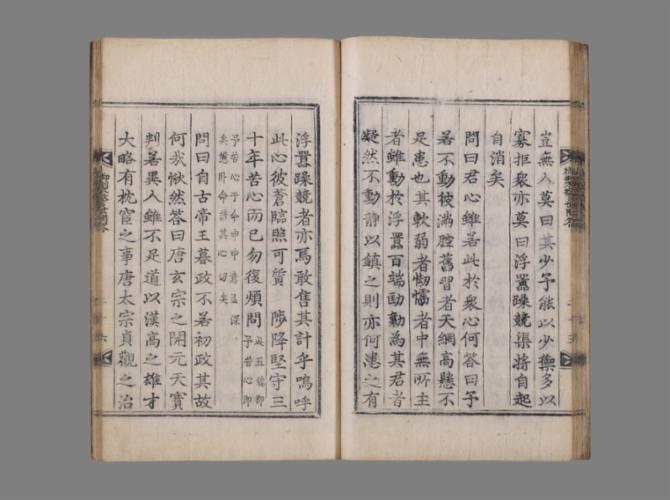 豈無人莫曰其少予能以少禦多以
寡拒衆亦莫曰浮囂躁競渠將自起
自消矣
問曰君心雖若此於衆心何答曰予
若不動被滿腔舊習者天網高懸不
足患也其軟弱者㤼懦者中無所主
者雖動於浮囂百端勸爲其君者
凝然不動靜以鎮之則亦何患之有
浮囂躁競者亦焉敢售其計乎嗚呼
此心彼蒼臨照可質 陟降堅守三
十年苦心而已勿復煩問
予苦心即
予苦心于今中中意益深
矣
問曰自古帝王暮政不若初政其故
何我愀然答曰唐玄宗之開元天寶
判若異人雖不足道以漢高之雄才
大略有枕宦之事唐太宗貞觀之治